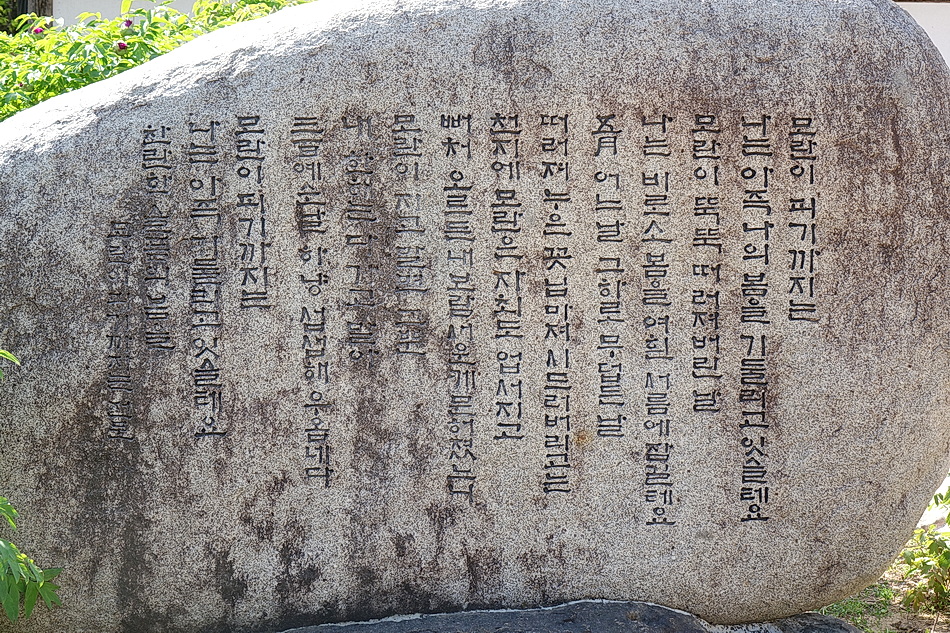 모란이 피기까지는
나는 아즉 나의 봄을 기둘리고 잇슬테요
모란이 뚝뚝 떠러져버린 날
나는 비로소 봄을 여흰 서름에 잠길테요
五月 어느날 그하로 무덥든 날
떠러져 누은 꽃닙마저 시드러버리고는
천지에 모란은 자최도 업서지고
뻐처 오르든 내 보람 서운케 문허졌느니
모란이 지고말면 그뿐
내 한해는 다 가고말아
三百예순날 하냥 섭섭해 우옵네다
모란이 피기까지는
나는 아즉 기둘리고 잇슬테요
찬란한 슬픔의 봄을
모란이 피기까지는